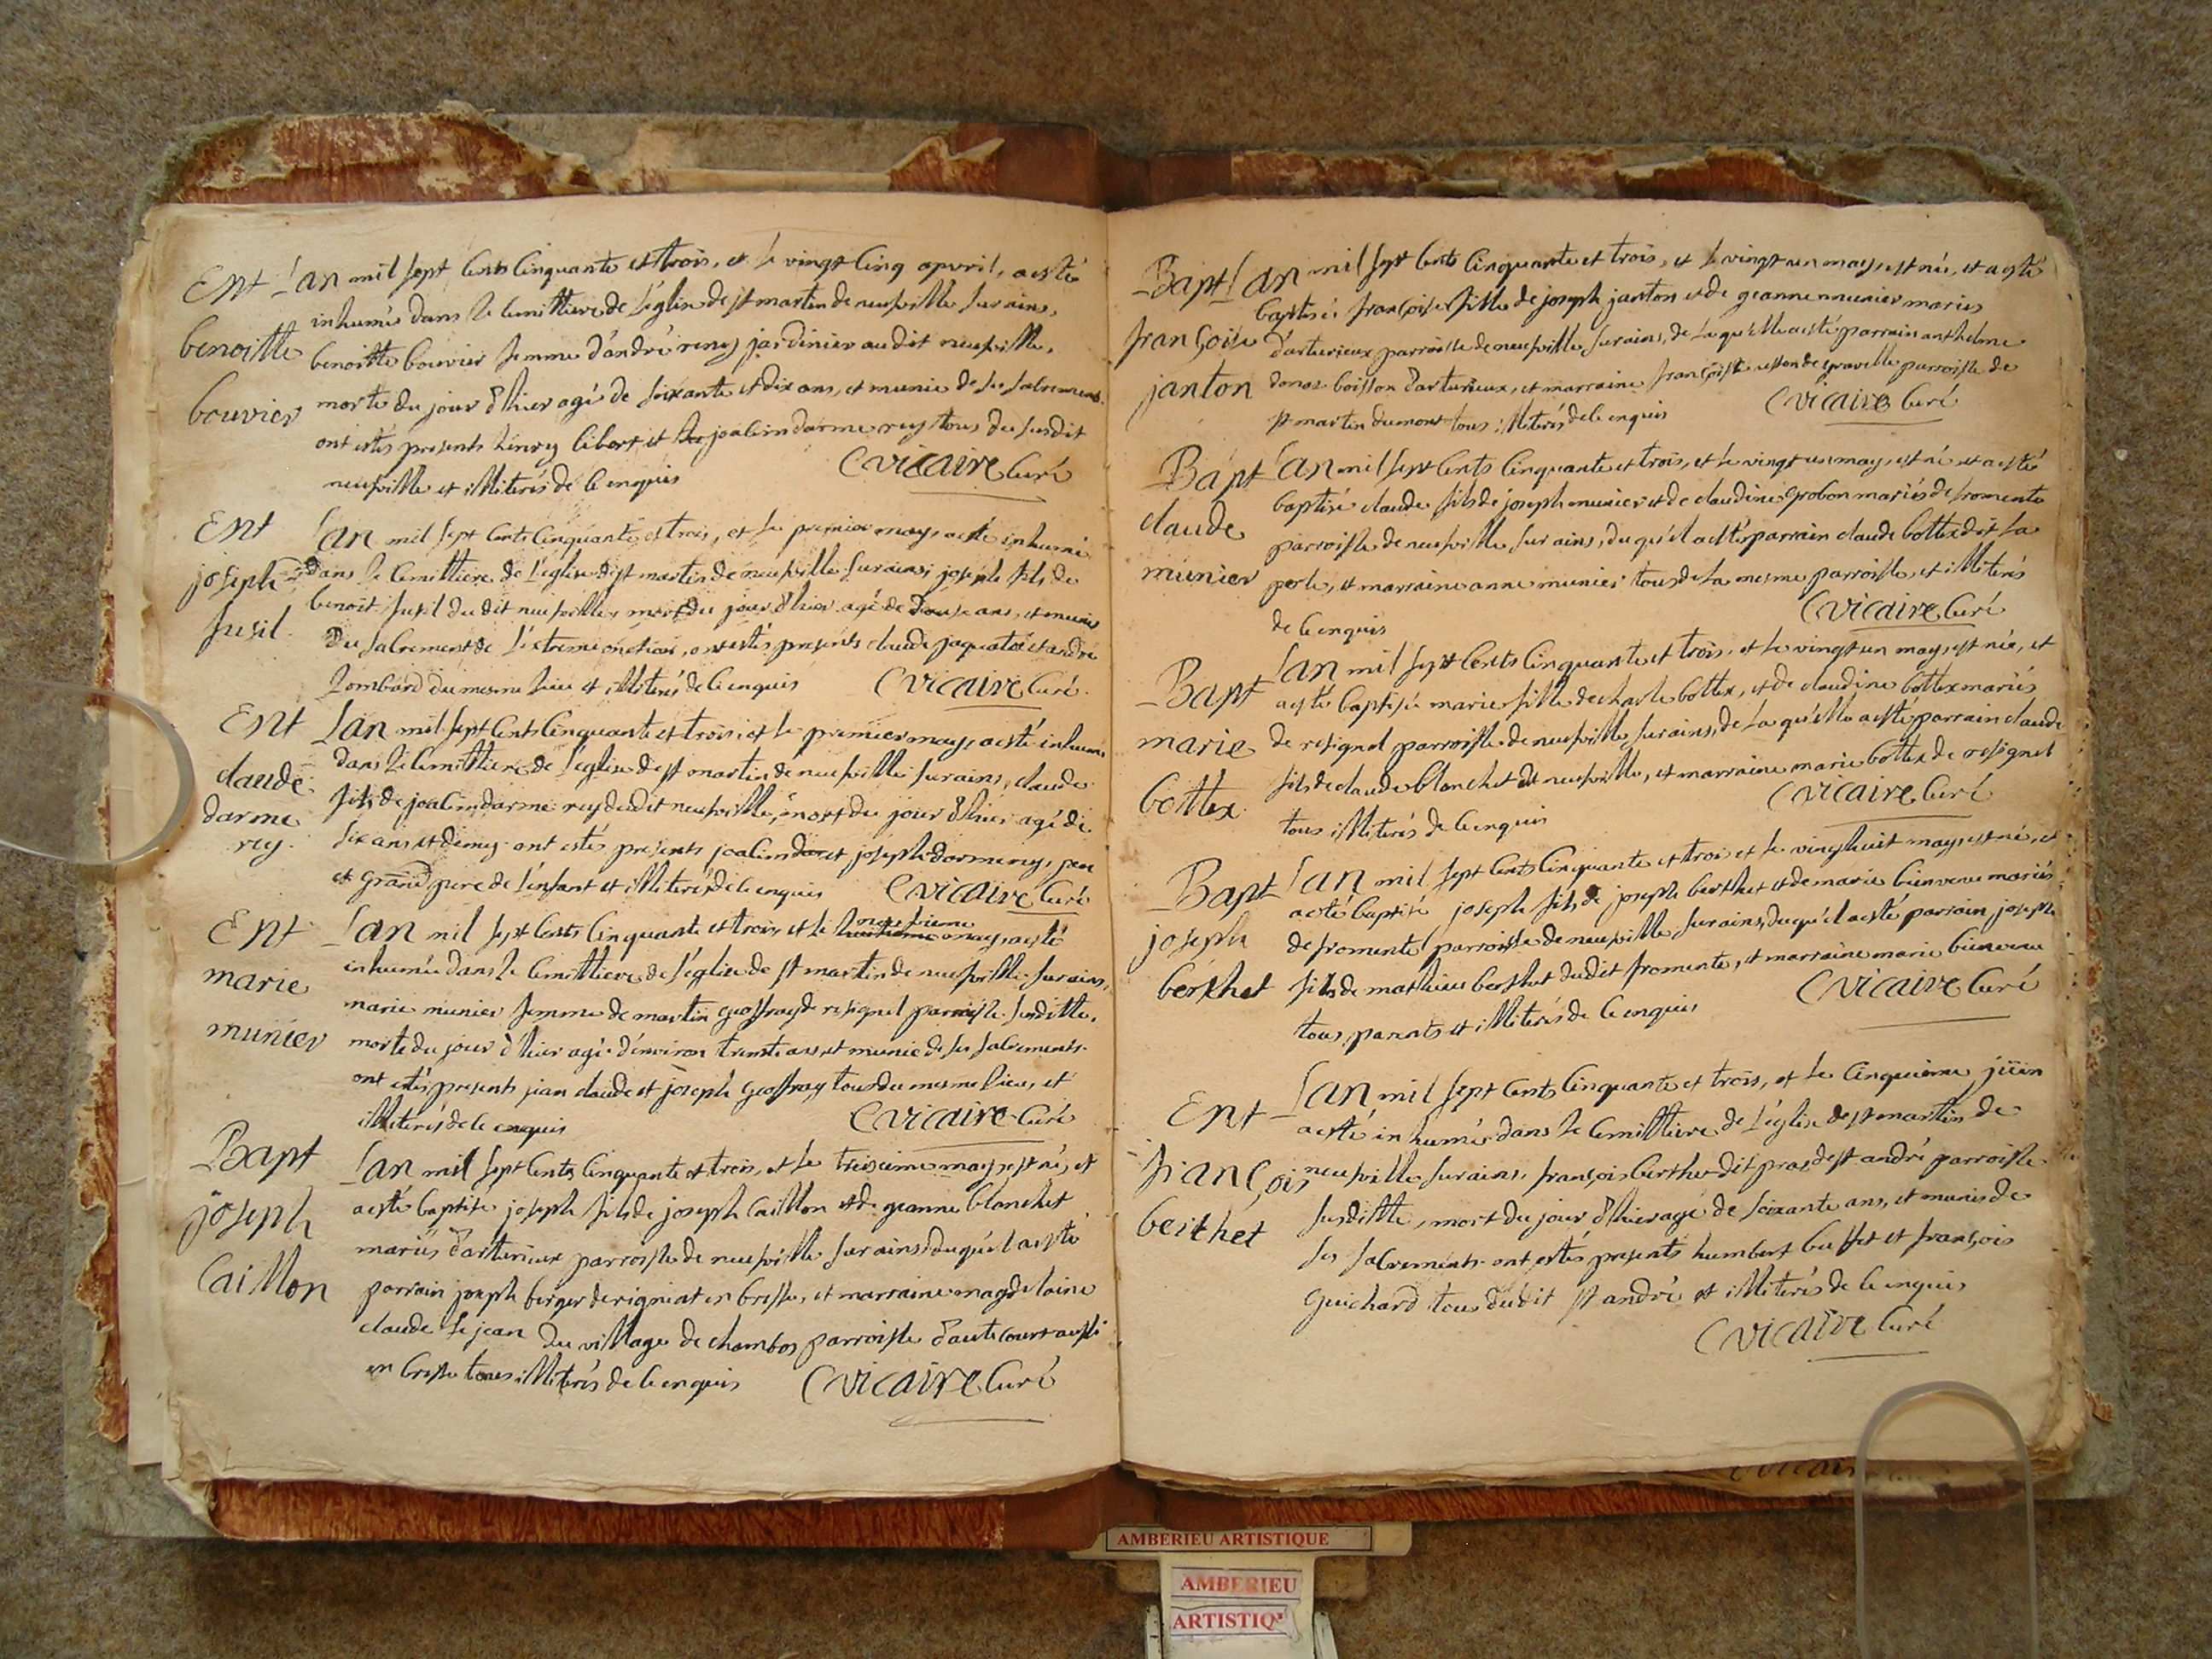 Ent
benoitte
bouvier
Lan mil sept cents cinquante et trois, et le vingt cinq apvril, a esté
inhumée dans le cemittiere de l'église de st martin de neufville sur ains,
benoitte bouvier femme d'andré reney jardinier au dit neufville,
morte du jour d'hier agé de soixante et dix ans, et munie de ses sacrements
ont estés presents henry libert et joachim darmerey tous du susdit
neufville et illiterés de ce enquis
C vicaire Curé
Ent
joseph
fusil
Lan mil sept cents cinquante et trois, et le premier may, a esté inhumé
dans le cemittiere de l'église de st martin de neufville sur ains, joseph fils de
benoit fusil du dit neufville, mort du jour d'hier agé de douse ans, et munis
du sacrement de l'extreme onction, ont estés presents claude jaquatot et andré
Lombard du mesme lieu et illiterés de ce enquis
C vicaire Curé
Ent
claude
darme
rey
Lan mil sept cents cinquante et trois, et le premier may, a esté inhumé
dans le cemittiere de l'église de st martin de neufville sur ains, claude
fils de joachim darmerey du dit neufville, mort du jour d'hier agé de
six ans et demy ont estés presents joachim et joseph darmerey, pere
et grand pere de l'enfant et illiterés de ce enquis
C vicaire Curé
Ent
marie
munier
Lan mil sept cents cinquante et trois, et le onzieme may, a esté
inhumée dans le cemittiere de l'église de st martin de neufville sur ains,
marie munier femme de martin geoffray de resignel parroisse susditte,
morte du jour d'hier agé d'environ trente ans, et munie de ses sacrements
ont estés presents jean claude et joseph geoffray tous du mesme lieu, et
illiterés de ce enquis
C vicaire Curé
Bapt
joseph
Caillon
Lan mil sept cents cinquante et trois, et le treizieme may, est né, et
a esté baptisé joseph fils de joseph Caillon et de geanne blanchet
mariés d'arturieux parroisse de neufville sur ains, duqu'el a esté
parrain joseph berger de rigniat en bresse, et marraine magdelaine
claude le jean du village de chambos parroisse d'autecourt aussi
en bresse tous illiterés de ce enquis
C vicaire Curé
Bapt
françoise
janton
Lan mil sept cents cinquante et trois, et le vingt un may, est née, et a esté
baptisée françoise fille de joseph janton et de geanne munier mariés
d'arturieux parroisse de neufville sur ains, de laqu'elle a esté parrain anthelme
donat boisson d'arturieux, et marraine françoise de gravelle parroisse de
st martin du mont tous illiterés de ce enquis
C vicaire Curé
Bapt
claude
munier
Lan mil sept cents cinquante et trois, et le vingt un may, est né et a esté
baptisé claude fils de joseph munier et de claudine grobon mariés de fromente
parroisse de neufville sur ains, duqu'el a esté parrain claude bottex dit la
perle, et marraine anne munier tous de la mesme parroisse, et illiterés
de ce enquis
C vicaire Curé
Bapt
marie
bottex
Lan mil sept cents cinquante et trois, et le vingt un may, est née, et
a esté baptisée marie fille de charle bottex, et de claudine bottex mariés
de resignel parroisse de neufville sur ains, de laqu'elle a esté parrain claude
fils de claude blanchet de neufville, et marraine marie bottex de resignel
tous illiterés de ce enquis
C vicaire Curé
Bapt
joseph
berthet
Lan mil sept cents cinquante et trois et le vingt huit may, est né, et
a esté baptisé joseph fils de joseph berthet et de marie bienvenu mariés
de fromente parroisse de neufville sur ains, duqu'el a esté parrain joseph
fils de mathieu berthet dudit fromente, et marraine marie bienvenu
tous parents et illiterés de ce enquis
C vicaire Curé
Ent
françois
berthet
Lan mil sept cents cinquante et trois, et le cinquieme juin
a esté inhumé dans le cemittiere de l'église de st martin de
neufville sur ains, françois berthet dit pras de st andré parroisse
susditte, mort du jour d'hier agé de soixante ans, et munis de
ses sacrements ont estés presents humbert buffet et françois
guichard tous dudit st andré et illiterés de ce enquis
C vicaire Curé
AMBERIEU ARTISTIQUE
AMBERIEU
ARTISTIQ